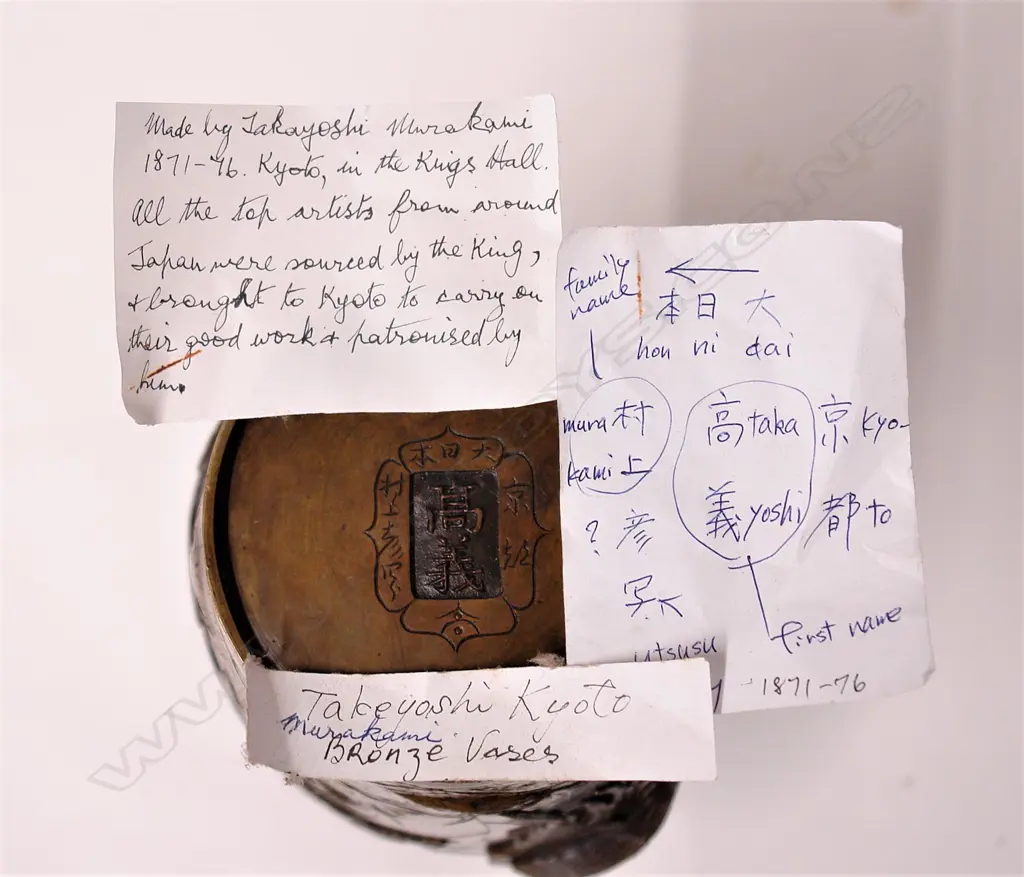 Made by Takayoshi Murakami
1871-76. Kyoto, in the Kings Hall.
All the top artists from around
Japan were sourced by the King,
& brought to Kyoto to carry on
their good work & patronised by
him.
family
name
本日大
hon ni dai
mura 村
kami 上
高 taka
義 yoshi
京 Kyo-
都 to
? 彦
写
utsusu
first name
1871-76
大日本
京都
高義
村上彦
Takeyoshi Kyoto
murakami
Bronze Vases